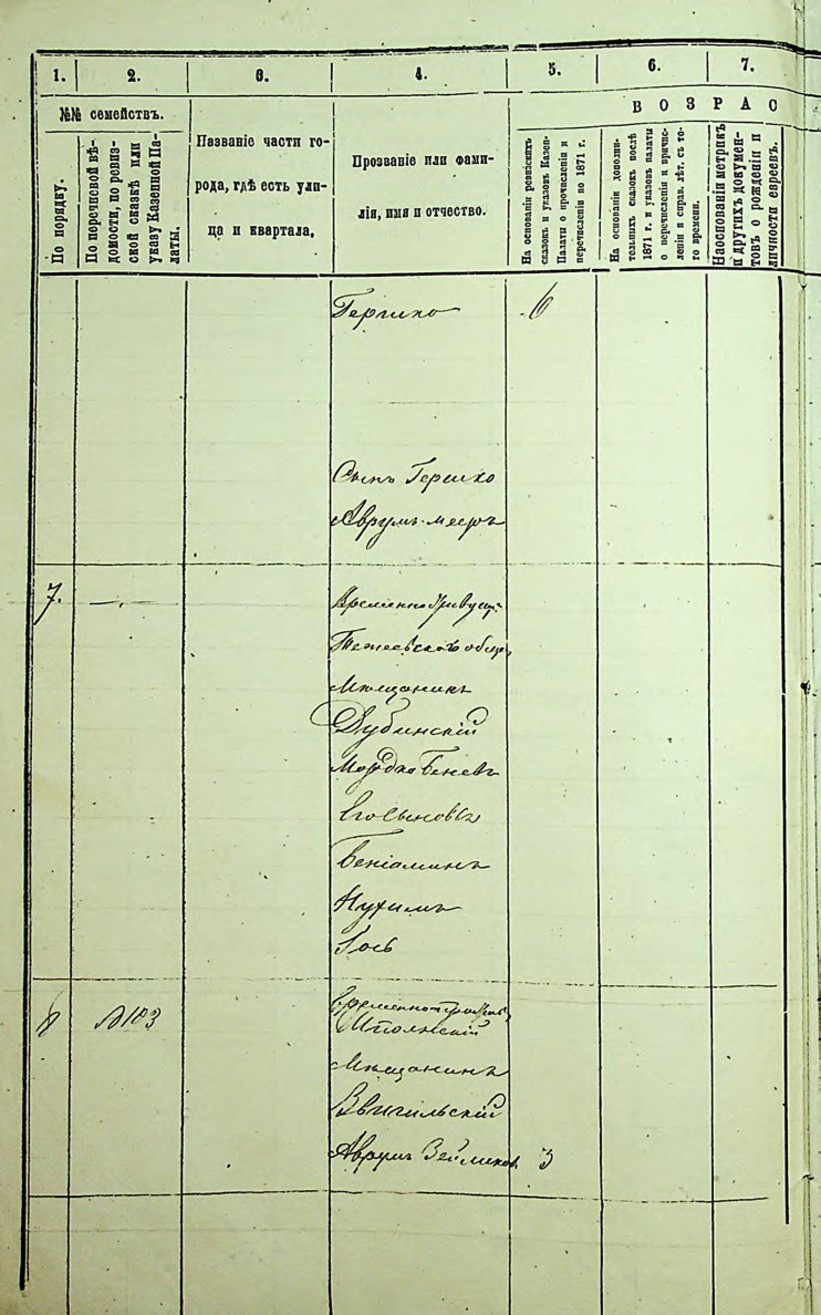 1.
2.
3.
4.
5.
6.
7.
В О З Р А С
№№ семействъ.
По порядку.
По перечневой вѣ-
домости, по ревиз-
ской сказкѣ или
указу Казенной Па-
латы.
Названіе части го-
рода, гдѣ есть ули-
ца и квартала.
Прозваніе или фами-
лія, имя и отчество.
На основаніи ревизскихъ
сказокъ и указовъ Казен.
Палаты о причисленіи и
перечисленіи по 1871 г.
На основаніи дополни-
тельныхъ сказокъ послѣ
1871 г. и указовъ палаты
о перечисленіи и причис-
леніи и справ. лѣт. съ то-
го времени.
На основаніи метрикъ
и другихъ докумен-
товъ о рожденіи и
личности евреевъ.
Гершко 6
Сынъ Гершко
Аврумъ-мееръ
7. —
Временно
Мѣщанинъ
Дубинскій
Мордко Беневъ
Его Сыновья
Беніаминъ
Нухимъ
Іось
8 №103
Мѣщанинъ
Аврумъ Зейликов 3